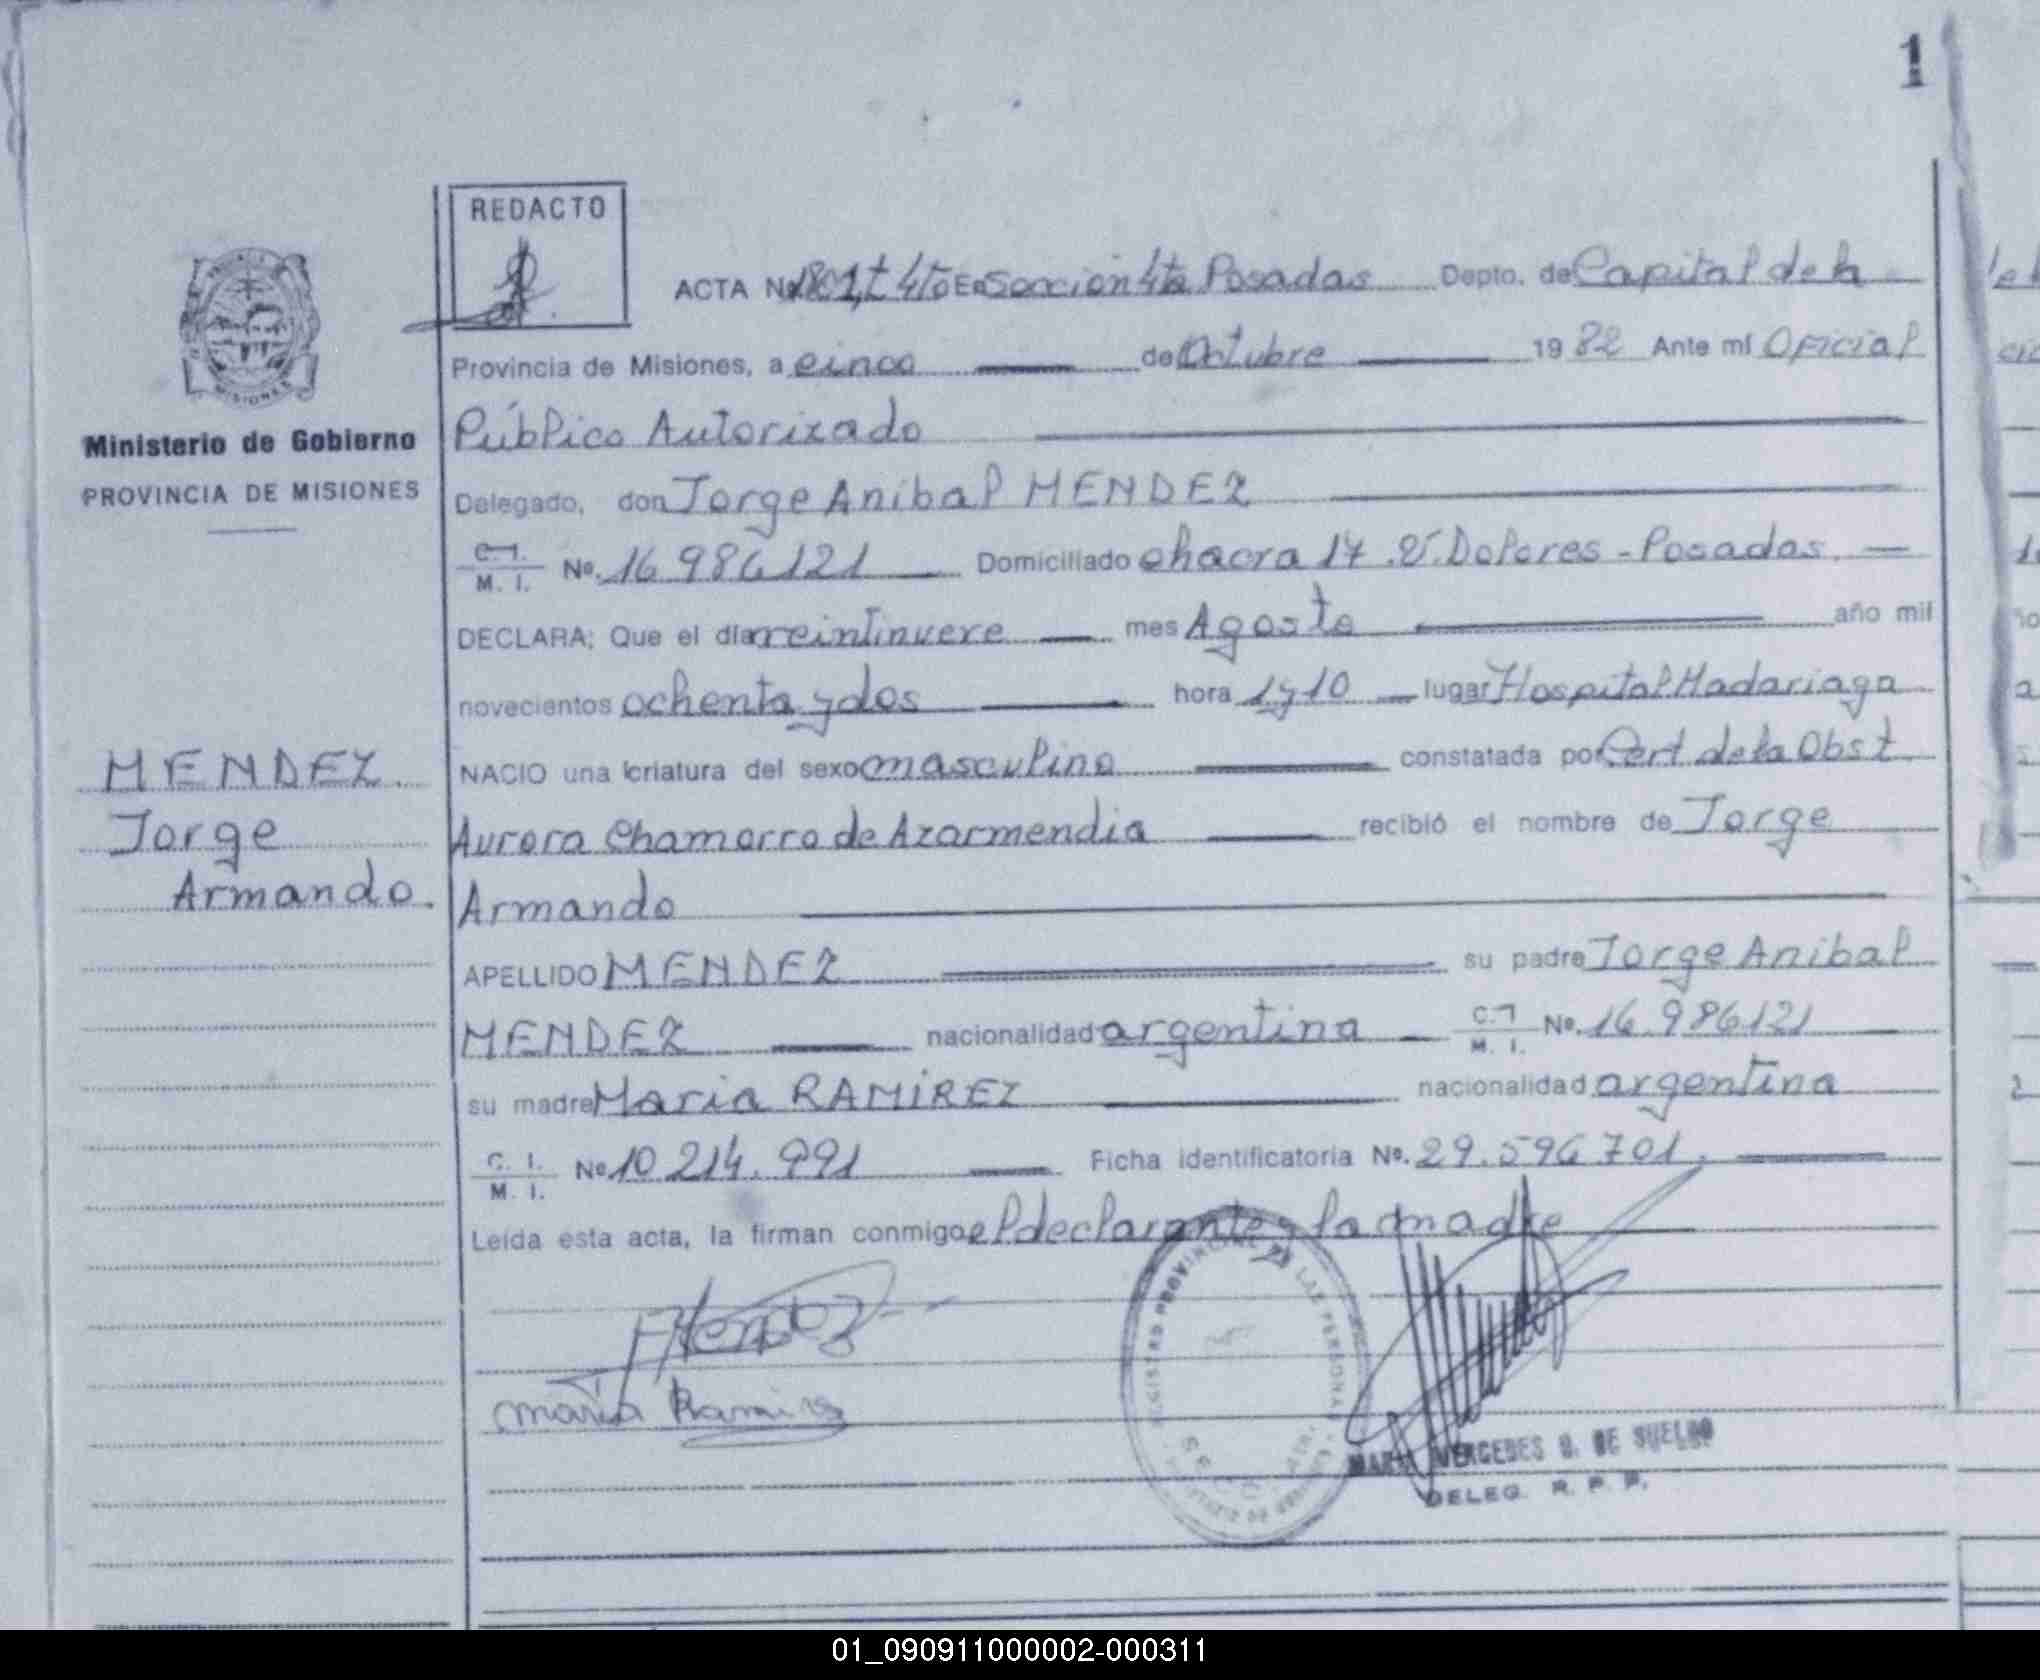 1
REDACTO
ACTA Nº 1801, t 4to En Sección 4ta Posadas Depto. de Capital de la
Provincia de Misiones, a cinco de Octubre 1982 Ante mí Oficial
Público Autorizado
Delegado, don Jorge Anibal MENDEZ
C. I. M. I. Nº. 16 986121 Domiciliado chacra 17. V. Dolores - Posadas.
DECLARA; Que el día veintinueve mes Agosto año mil
novecientos ochenta y dos hora 1y10 lugar Hospital Madariaga
NACIO una criatura del sexo masculino constatada por Cert de la Obst
Aurora Chamorro de Azarmendia recibió el nombre de Jorge
Armando
APELLIDO MENDEZ su padre Jorge Anibal
MENDEZ nacionalidad argentina C. I. M. I. Nº. 16.986121
su madre Maria RAMIREZ nacionalidad argentina
C. I. M. I. Nº 10.214.991 Ficha identificatoria Nº. 29.596701.
Leída esta acta, la firman conmigo el declarante y la madre
Ministerio de Gobierno
PROVINCIA DE MISIONES
MENDEZ
Jorge
Armando.
Maria Ramirez
REGISTRO PROVINCIAL DE LAS PERSONAS
MERCEDES DE SUELDO
DELEG. R. P. P.
01_090911000002-000311